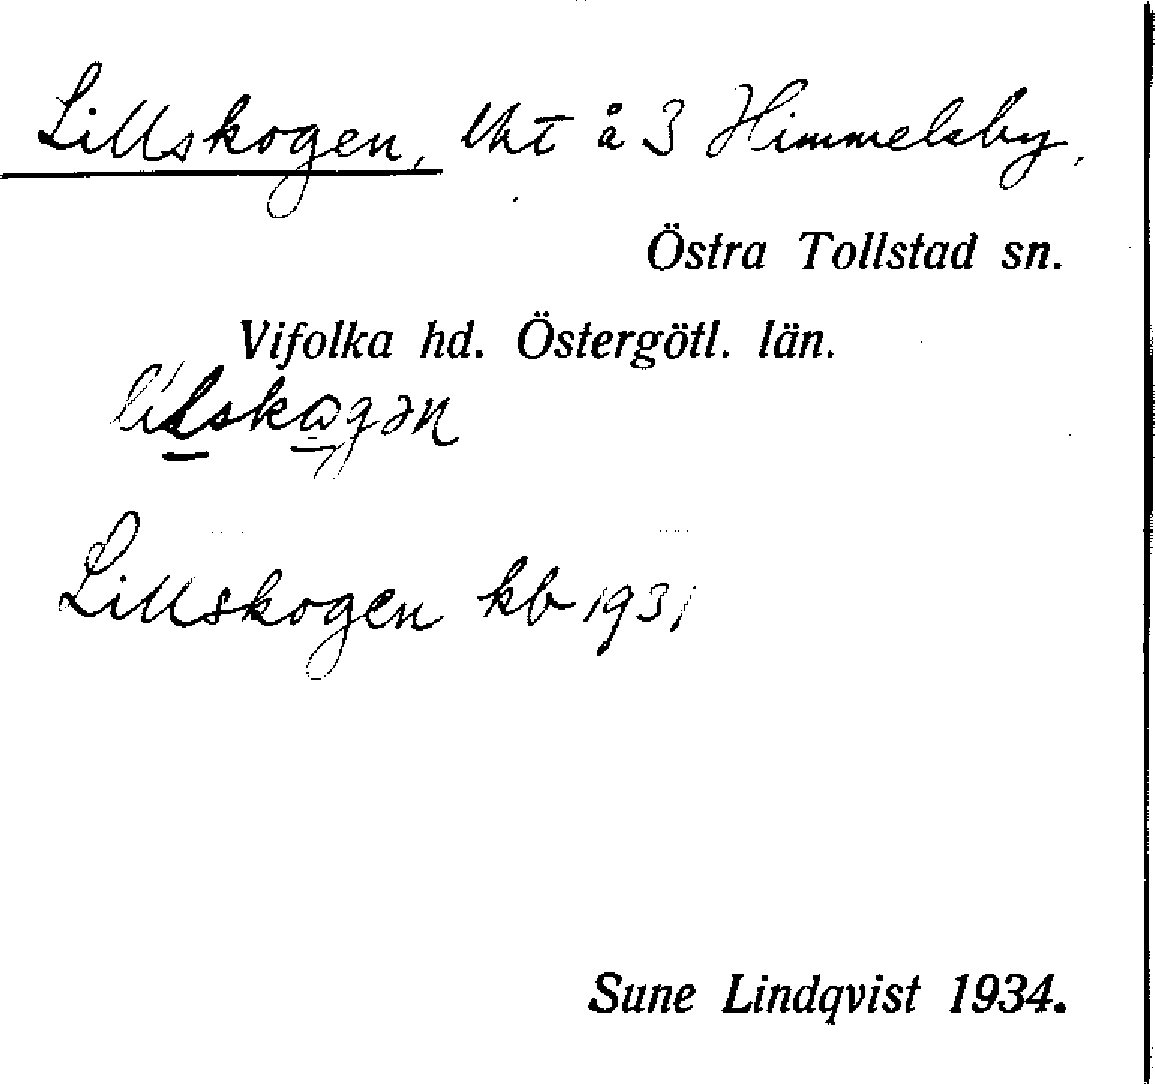 Lillskogen, lht å 3 Himmelsby.
Östra Tollstad sn.
Vifolka hd. Östergötl. län.
Lillskogen kb 1931
Sune Lindqvist 1934.